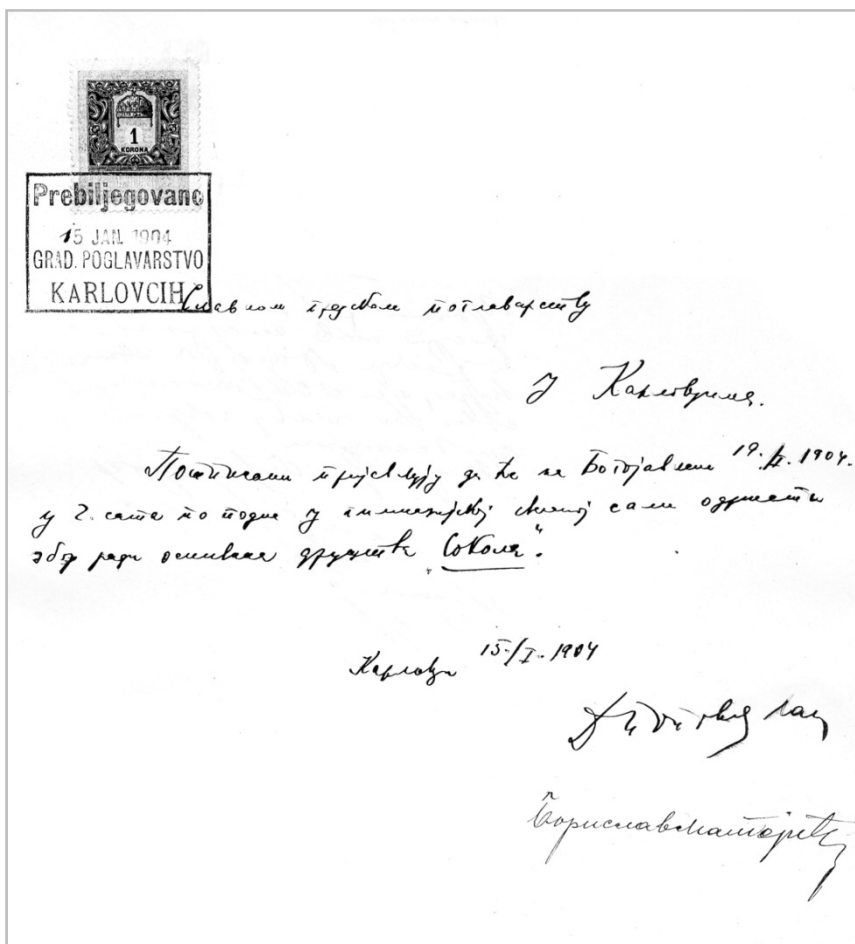 1
KORONA
Prebiljegovano
15 JAN. 1904
GRAD. POGLAVARSTVO
KARLOVCIH
Славном градском поглаварству
у Карловцима.
Потписани пријављују да ће на Богојављење 19./I. 1904.
у 2. сата по подне у гимназијској свечаној сали одржати
збор ради оснивања друштва „Сокола“.
Карловци 15./I. 1904
Борислав